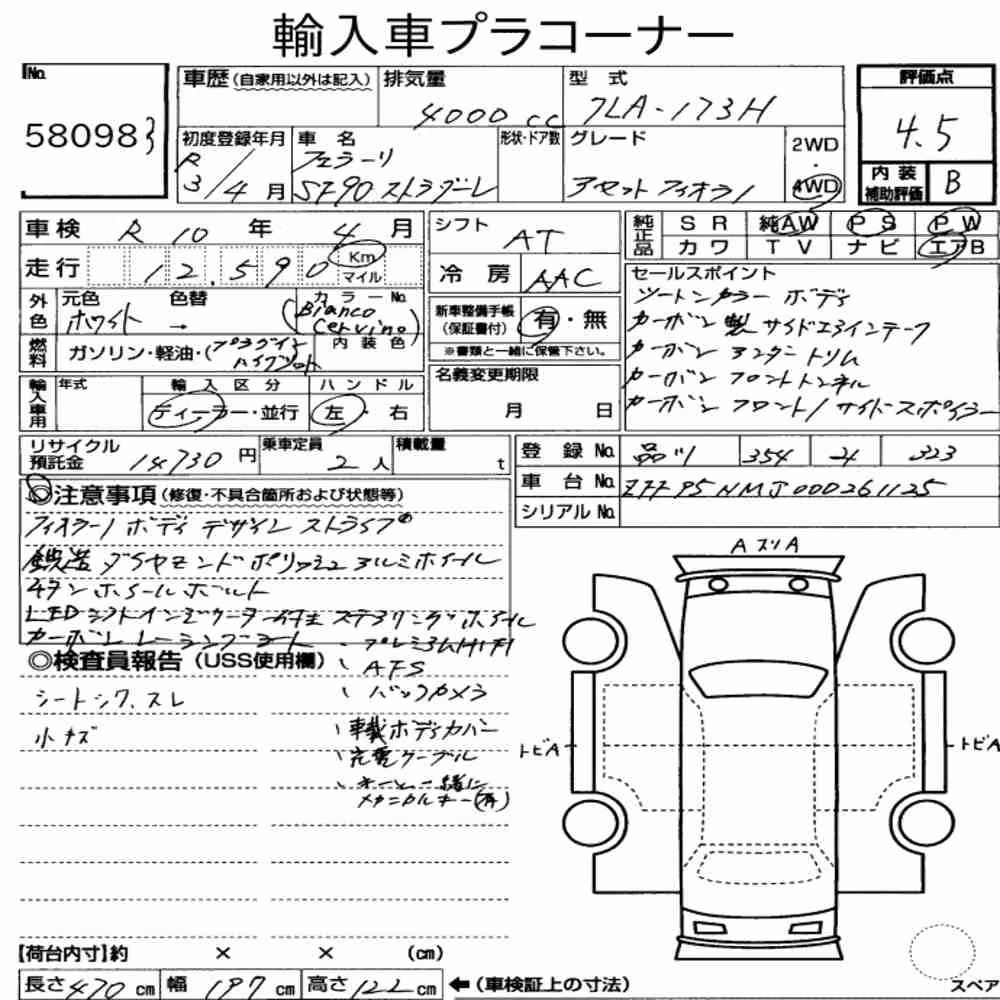 輸入車プラコーナー
No.
58098
車歴(自家用以外は記入)
排気量
4000 cc
型式
7LA-173H
評価点
4.5
初度登録年月
R
3/4月
車名
フェラーリ
SF90 ストラダーレ
形状・ドア数
グレード
アセットフィオラノ
2WD
・
4WD
内装
補助評価
B
車検 R 10 年 4 月
走行 12,590 Km
マイル
シフト
AT
冷房 AAC
純正品
SR 純AW PS PW
カワ TV ナビ エアB
外色
元色 色替 カラーNo.
ホワイト → (Bianco Cervino)
内装色
燃料
ガソリン・軽油・(プラグインハイブリット)
新車整備手帳
(保証書付)
有・無
※書類と一緒に保管下さい。
セールスポイント
ツートンカラー ボディ
カーボン製 サイドエアインテーク
カーボン アンダートリム
カーボン フロントトンネル
カーボン フロント/サイドスポイラー
輸入車用
年式
輸入区分
ディーラー・並行
ハンドル
左・右
名義変更期限
月 日
リサイクル
預託金
14730円
乗車定員
2人
積載量
t
登録No. 品川 354 323
車台No. ZFF95NMJ000261125
シリアルNo.
◎注意事項(修復・不具合箇所および状態等)
フィオラノ ボディ デザイン ストライプ
鍛造 ダイヤモンドポリッシュ アルミホイール
チタン ホイールボルト
LEDシフトインジケーター付 ステアリングホイール
カーボン レーシングシート
、プレミアムHIFI
、AFS
、バックカメラ
、車載ボディカバー
、充電ケーブル
、キーと一緒に
メカニカルキー(有)
◎検査員報告(USS使用欄)
シートシワ、スレ
小キズ
AスリA
トビA
トビA
スペア
【荷台内寸】約 × × (cm)
長さ470cm 幅197cm 高さ122cm
←(車検証上の寸法)